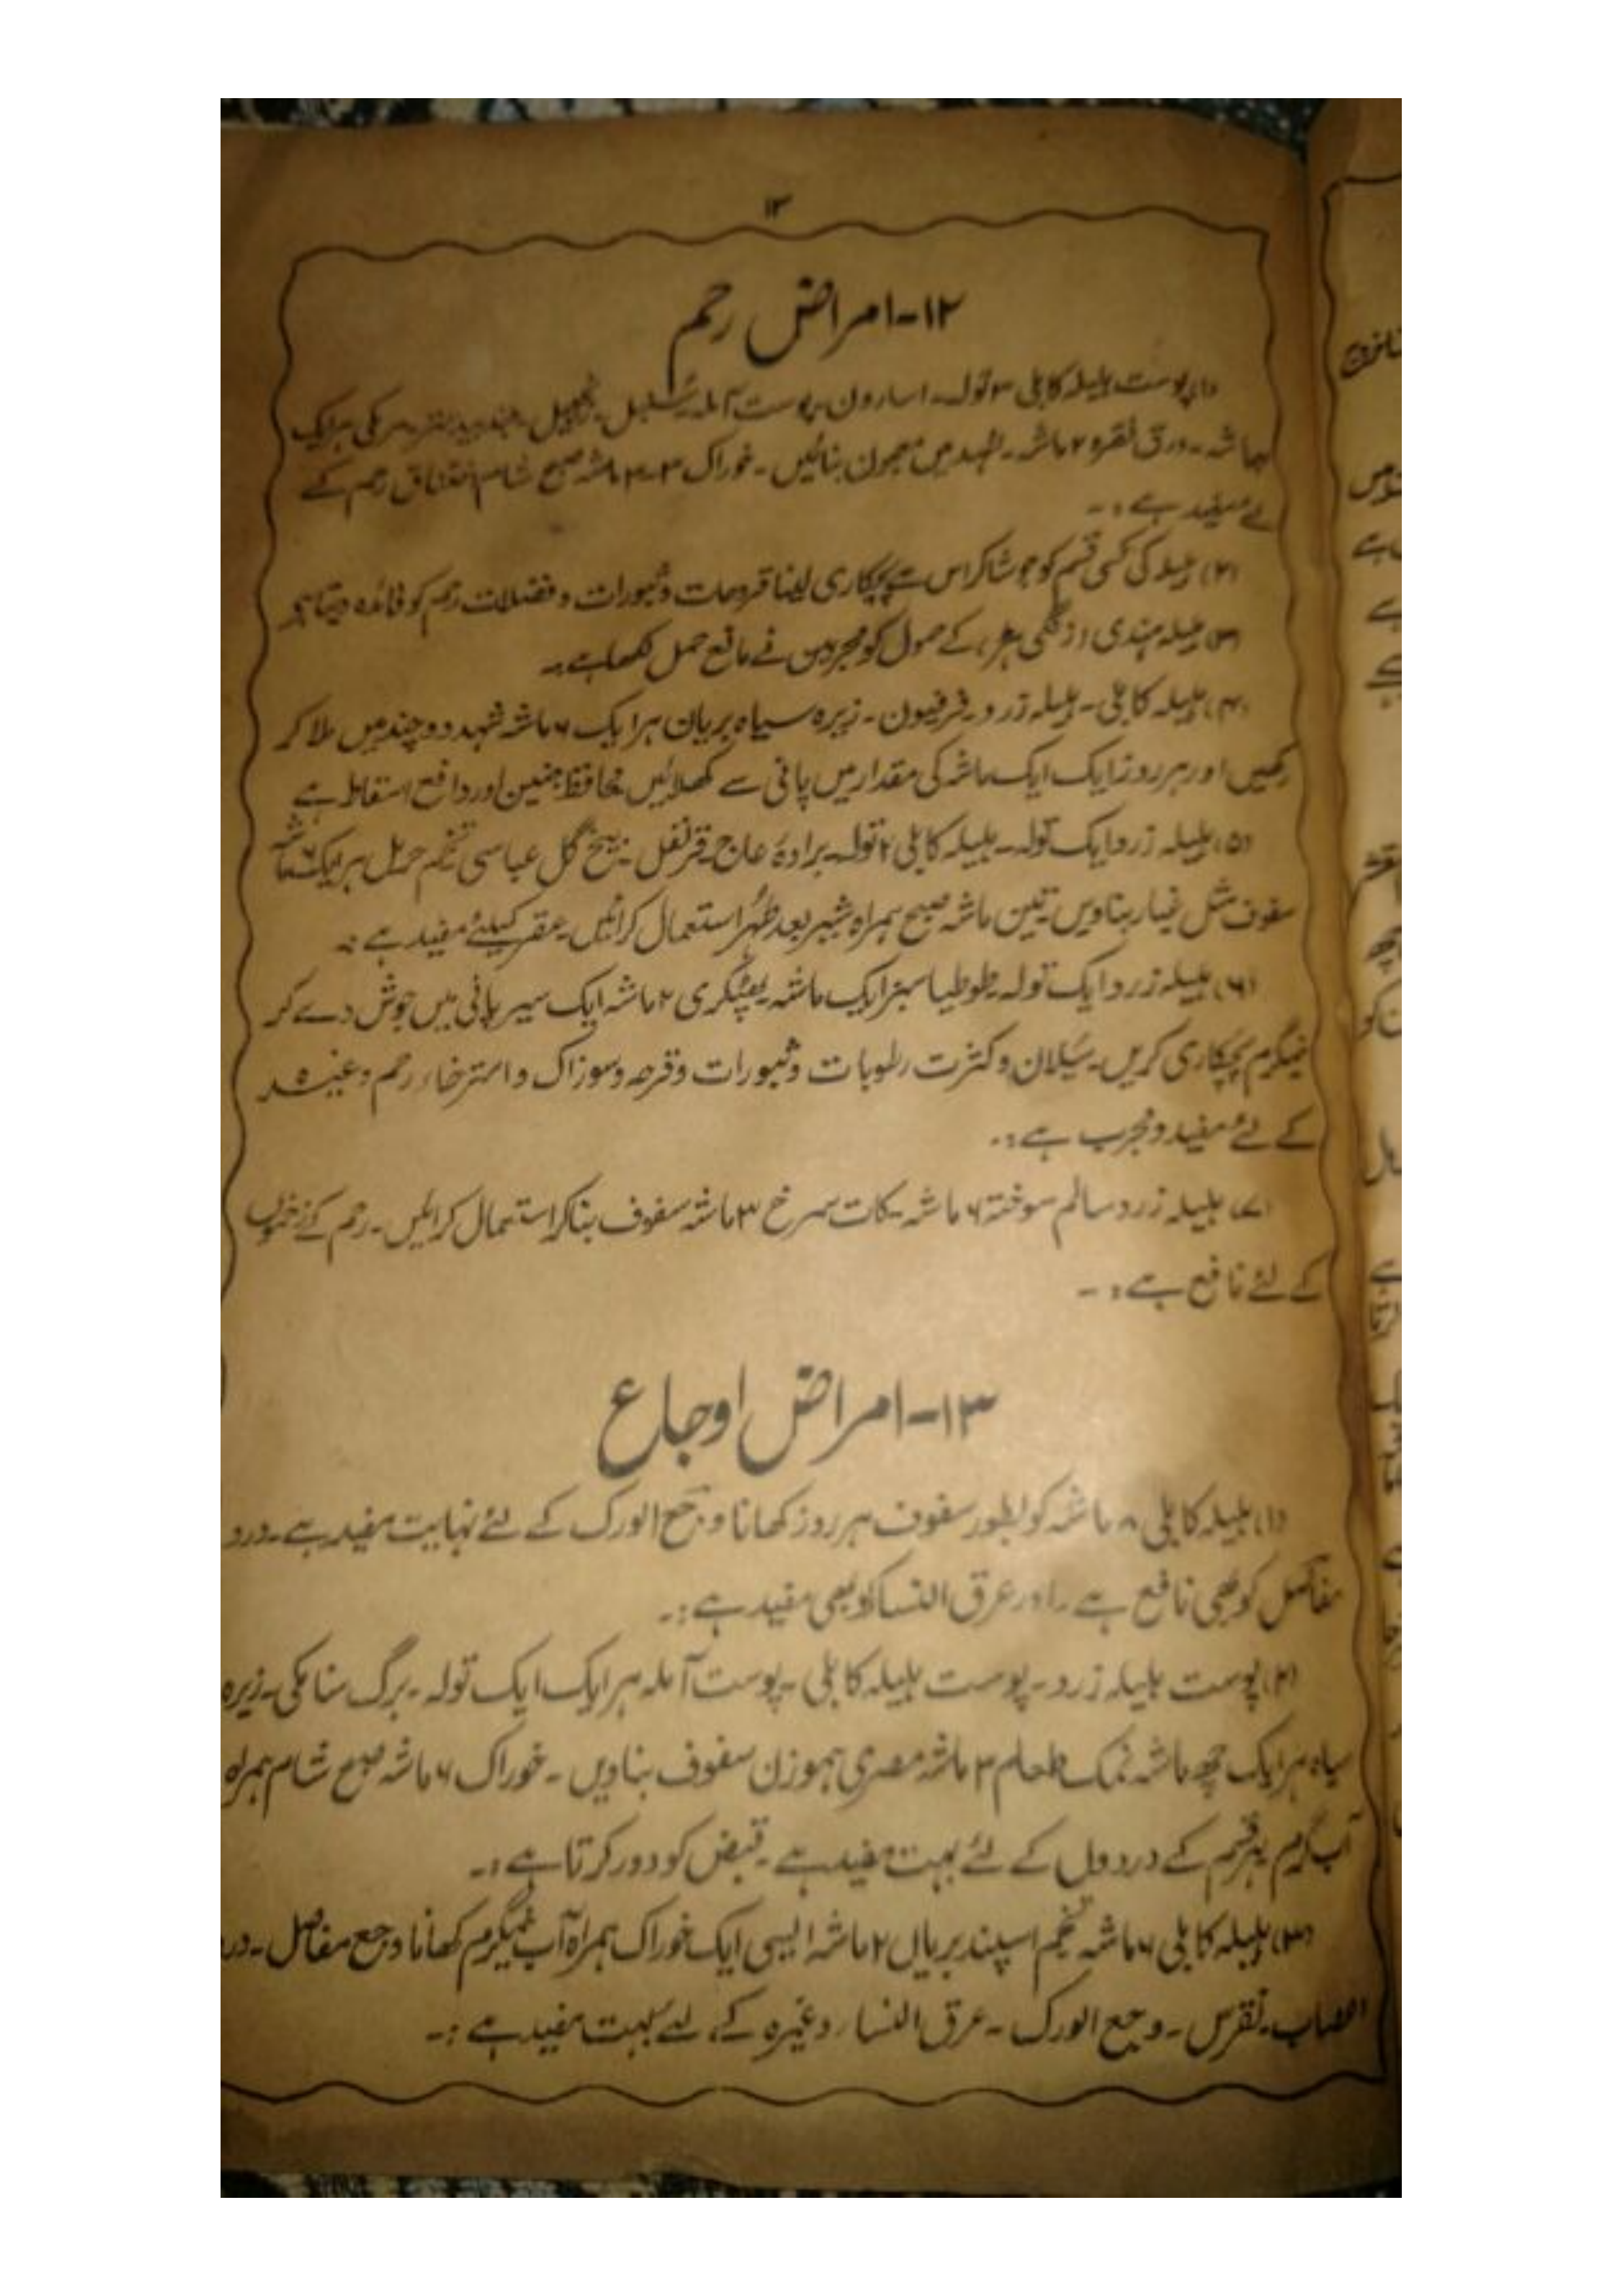 ۱۳
۱۲-امراض رحم
(۱) پوست ہلیلہ کابلی ۳ تولہ۔ اسارون۔ پوست آملہ۔ سنبل۔ زنجبیل۔ ہر ایک
ماشہ۔ ورق نقرہ ۲ ماشہ۔ شہد میں معجون بنائیں۔ خوراک ۳-۳ ماشہ صبح شام اختناق رحم کے
لئے مفید ہے:۔
(۲) ہلیلہ کی کسی قسم کو جوشا کر اس سے پچکاری لینا قروحات و ثبورات و فضلات رحم کو فائدہ دیتا ہے
(۳) ہلیلہ ہندی (زنگی ہڑ) کے حمول کو مجربین نے مانع حمل لکھا ہے:۔
(۴) ہلیلہ کابلی۔ ہلیلہ زرد۔ فرفیون۔ زیرہ سیاہ بریان ہر ایک ۶ ماشہ شہد دو چند میں ملا کر
رکھیں اور ہر روز ایک ایک ماشہ کی مقدار میں پانی سے کھلائیں محافظ جنین اور دافع اسقاط ہے
(۵) ہلیلہ زرد ایک تولہ۔ ہلیلہ کابلی ۲ تولہ۔ برادہ عاج۔ قرنفل۔ بیخ گل عباسی تخم حرمل ہر ایک ۶ ماشہ
سفوف مثل غبار بناویں۔ تین ماشہ صبح ہمراہ شیر بعد طہر استعمال کرائیں۔ عقر کیلئے مفید ہے:۔
(۶) ہلیلہ زرد ایک تولہ۔ طوطیا سبز ایک ماشہ۔ پھٹکری ۲ ماشہ ایک سیر پانی میں جوش دے کر
نیمگرم پچکاری کریں۔ سیلان و کثرت رطوبات و ثبورات و قرحہ و سوزاک و استرخاء رحم وغیرہ
کے لئے مفید و مجرب ہے:۔
(۷) ہلیلہ زرد سالم سوختہ ۶ ماشہ۔ کات سرخ ۳ ماشہ سفوف بنا کر استعمال کرائیں۔ رحم کے زخموں
کے لئے نافع ہے:۔
۱۳-امراض اوجاع
(۱) ہلیلہ کابلی ۸ ماشہ کو بطور سفوف ہر روز کھانا وجع الورک کے لئے نہایت مفید ہے۔ درد
مفاصل کو بھی نافع ہے۔ اور عرق النسا کو بھی مفید ہے:۔
(۲) پوست ہلیلہ زرد۔ پوست ہلیلہ کابلی۔ پوست آملہ ہر ایک ایک تولہ۔ برگ سنا مکی۔ زیرہ
سیاہ ہر ایک چھ ماشہ نمک طعام ۳ ماشہ مصری ہموزن سفوف بناویں۔ خوراک ۶ ماشہ صبح شام ہمراہ
آب گرم ہر قسم کے دردوں کے لئے بہت مفید ہے۔ قبض کو دور کرتا ہے:۔
(۳) ہلیلہ کابلی ۶ ماشہ تخم اسپند بریاں ۲ ماشہ ایسی ایک خوراک ہمراہ آب نیمگرم کھانا وجع مفاصل۔ درد
اعصاب۔ نقرس۔ وجع الورک۔ عرق النساء وغیرہ کے لئے بہت مفید ہے:۔